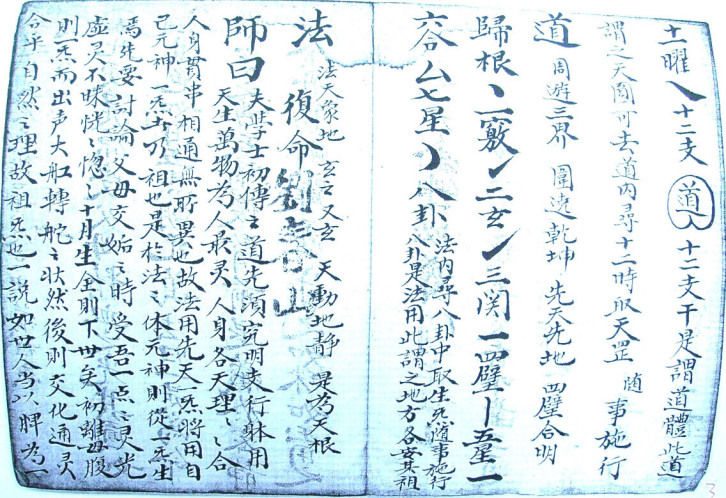 十一曜 十二支 道 十二支干是謂道體此道
謂之天圓可去道內尋十二時取天罡 随 事施行
道 周遊三界 圍遶乾坤 先天先地 四壁合明
歸根 一竅 二玄 三関 四壁 五星
六合 七星 八卦 法內尋八卦中取生死随事施行
八卦是法用此謂之地方各安其祖
法 法天象地 玄之又玄 天動地靜 是為天根
復命
師曰 夫學士初傳之道先須究明支行躰用
天生萬物為人最灵人身各天理合
人身貫串相通無所異也故法用先天炁將用自
己元神一炁土乃祖也是於法之体元神則從一炁生
焉先要討論父母交姤之時受吾一点之灵光
虛灵不昧恍惚十月生全則下世矣初離母腹
則一炁而出声大舡轉舵之狀然後則交化通灵
合乎自然之理故祖炁也一説如世人当以脾為一